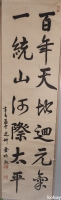 百年天地迴元氣
一統山河際太平